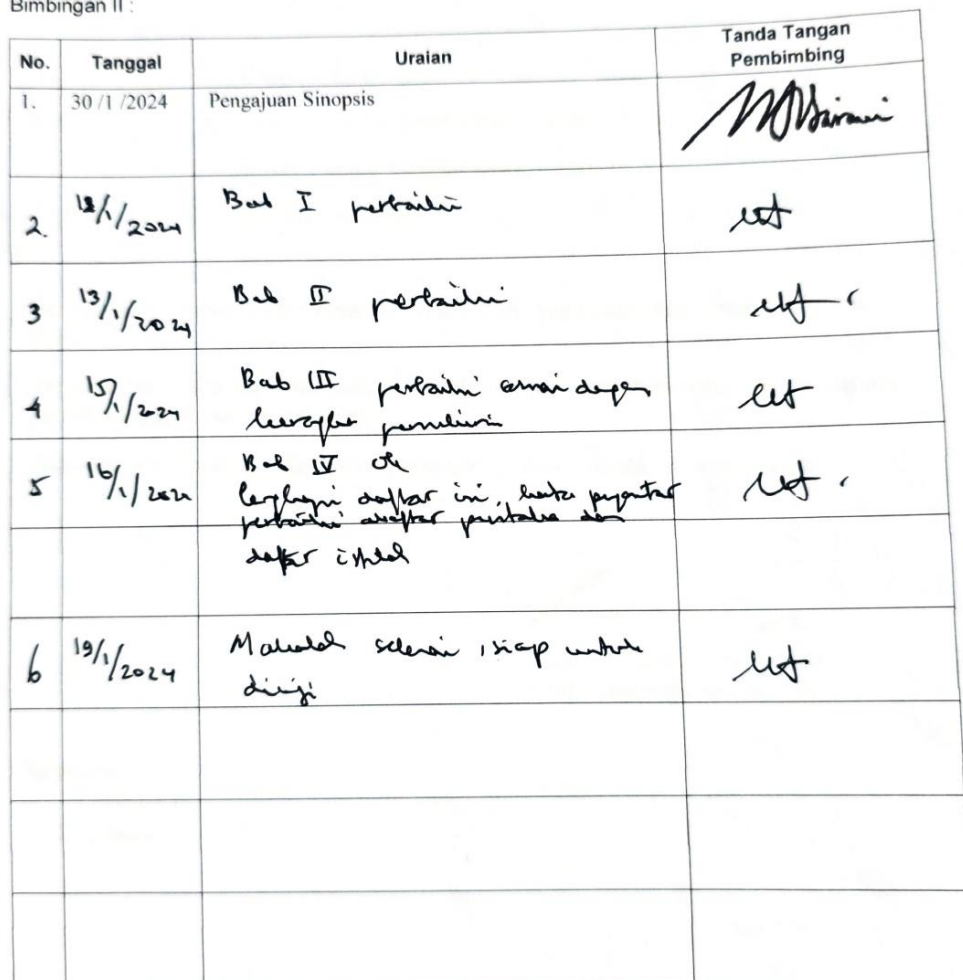 Bimbingan II :
No. Tanggal Uraian Tanda Tangan Pembimbing
1. 30 /1 /2024 Pengajuan Sinopsis
2. 12/1/2024 Bab I perbaiki
3 13/1/2024 Bab II perbaiki
4 15/1/2024 Bab III perbaiki sesuai dengan
kerangka
5 16/1/2024 Bab IV ok
lengkapi daftar isi, kata pengantar
perbaiki daftar pustaka dan
daftar istilah
6 19/1/2024 Makalah selesai, siap untuk
diuji